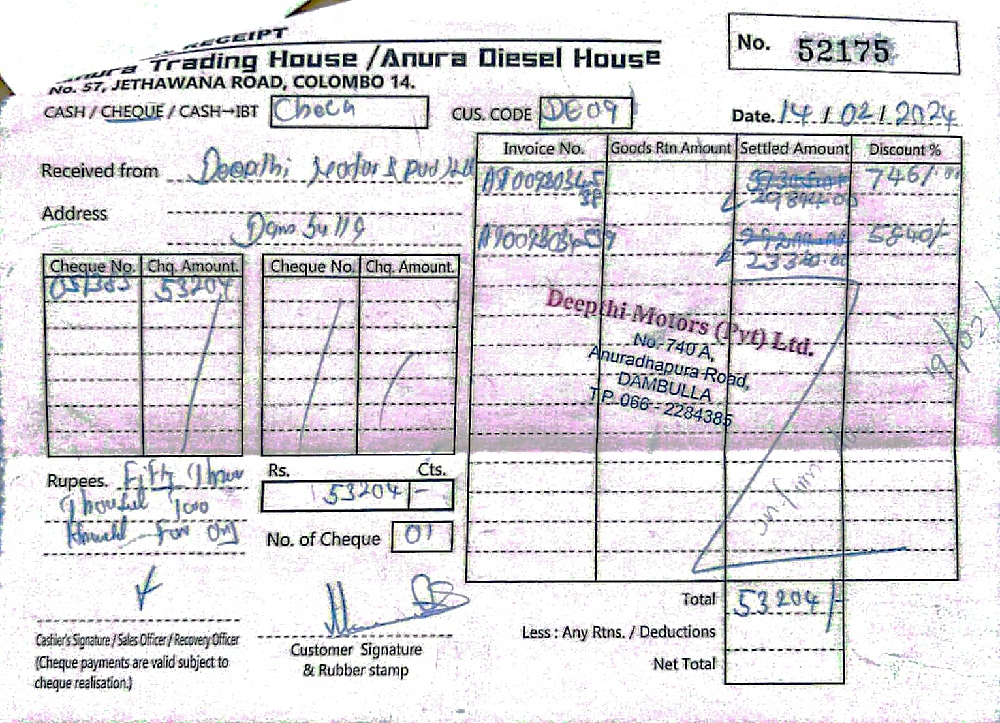 RECEIPT
Anura Trading House /Anura Diesel House
No. 57, JETHAWANA ROAD, COLOMBO 14.
No. 52175
CASH / CHEQUE / CASH→IBT
CUS. CODE DE09
Date. 14/02/2024
Received from Deepthi Motors Pvt Ltd
Address
Invoice No. Goods Rtn Amount Settled Amount Discount %
746/-
29844.00
5840/-
23340.00
Cheque No. Chq. Amount. Cheque No. Chq. Amount.
051383 53204
Deepthi Motors (Pvt) Ltd.
No. 740 A,
Anuradhapura Road,
DAMBULLA
T.P. 066 - 2284385
Rupees. Fifty Three
Thousand Two
Hundred Four Only
Rs. Cts.
53204 -
No. of Cheque 01
Total 53204/-
Less : Any Rtns. / Deductions
Net Total
Cashier's Signature / Sales Officer / Recovery Officer
(Cheque payments are valid subject to
cheque realisation.)
Customer Signature
& Rubber stamp